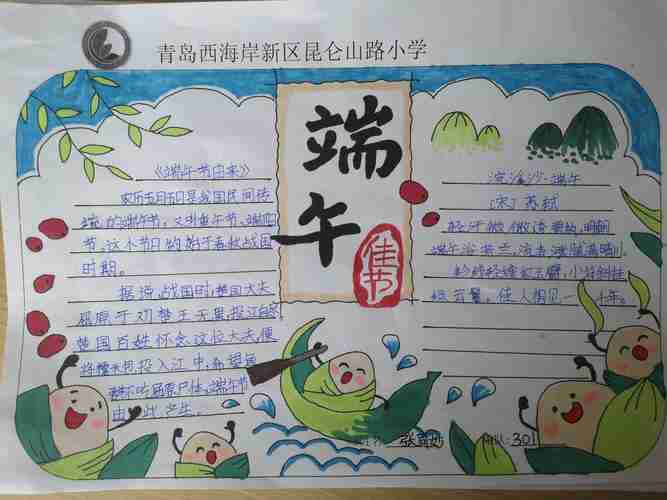 青岛西海岸新区昆仑山路小学
端午
佳节
《端午节由来》
农历五月五日是我国民间传
统的端午节，又叫重午节、端阳
节。这个节日的始于春秋战国
时期。
据说，战国时，楚国大夫
屈原于劝楚王无果，投江自尽
楚国百姓怀念这位大夫，便
将糯米包投入江中，希望鱼
吃屈原尸体。端午节
由此产生。
浣溪沙·端午
[宋]苏轼
轻汗微微透碧纨，明朝
端午浴芳兰。流香涨腻满晴川。
彩线轻缠红玉臂，小符斜挂
绿云鬟。佳人相见一千年。
301